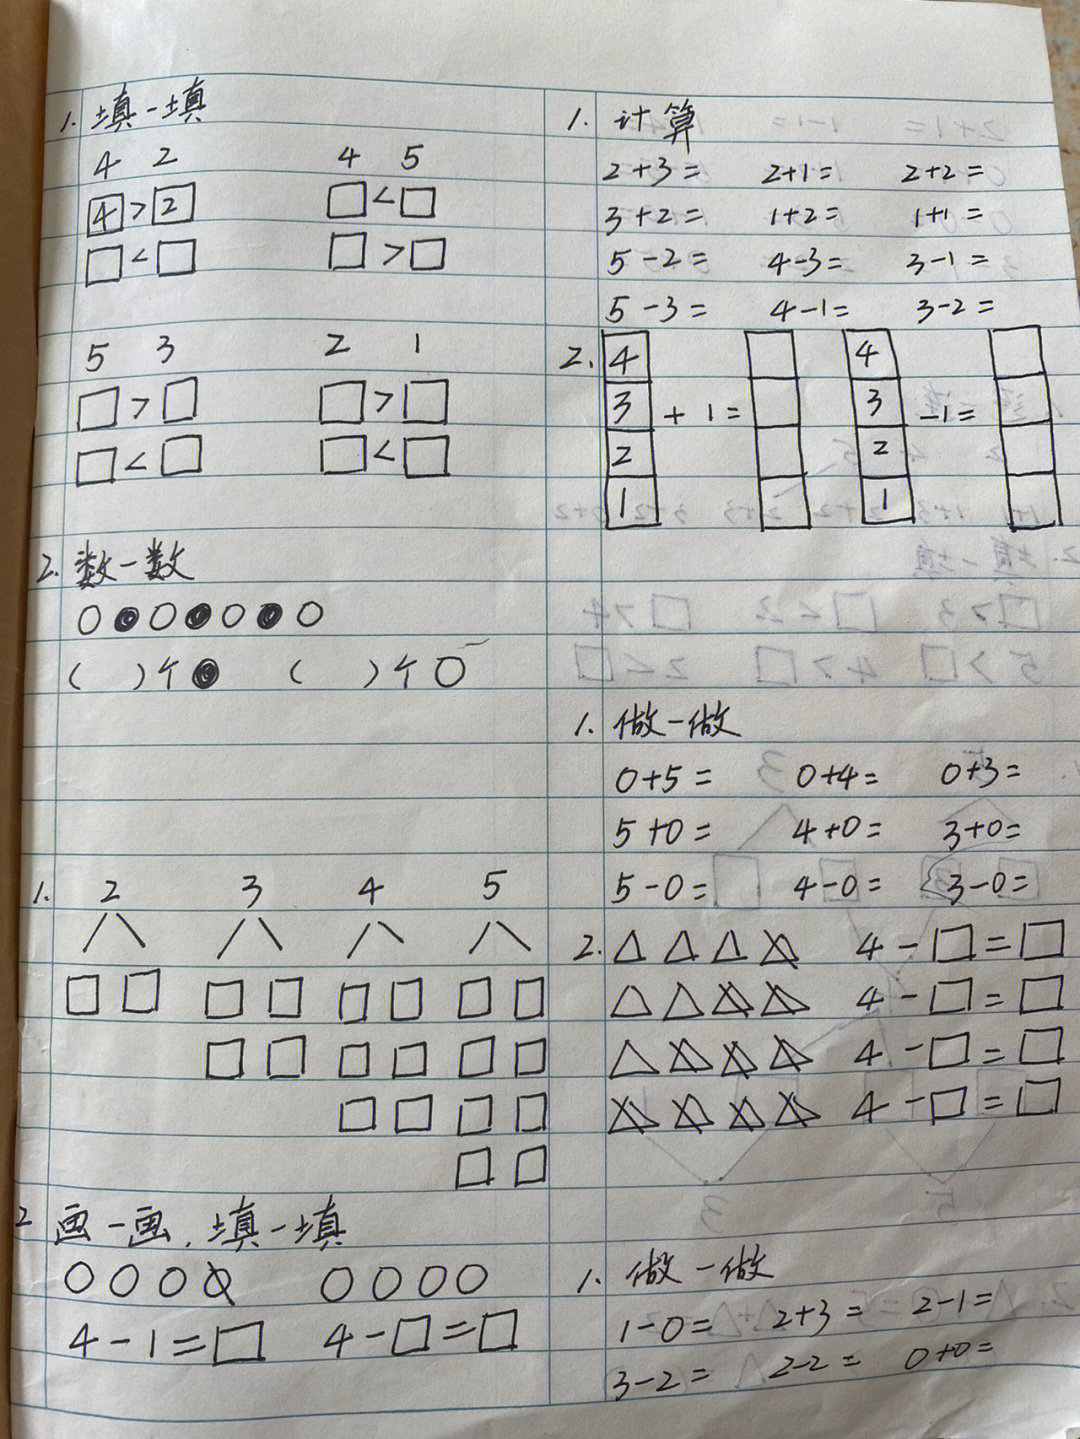 1. 填一填
4 2 4 5
4 > 2 □ < □
□ < □ □ > □
5 3 2 1
□ > □ □ > □
□ < □ □ < □
2. 数一数
○●○●○●○
( )个● ( )个○
1. 2 3 4 5
□ □ □ □ □ □ □ □
□ □ □ □ □ □
□ □ □ □
□ □
2 画一画、填一填
○○○○ ○○○○
4-1=□ 4-□=□
1. 计算
2+3= 2+1= 2+2=
3+2= 1+2= 1+1=
5-2= 4-3= 3-1=
5-3= 4-1= 3-2=
2. 4 4
3 +1= 3 -1=
2 2
1 1
1. 做一做
0+5= 0+4= 0+3=
5+0= 4+0= 3+0=
5-0= 4-0= 3-0=
2. △△△△ 4-□=□
△△△△ 4-□=□
△△△△ 4-□=□
△△△△ 4-□=□
1. 做一做
1-0= 2+3= 2-1=
3-2= 2-2= 0+0=